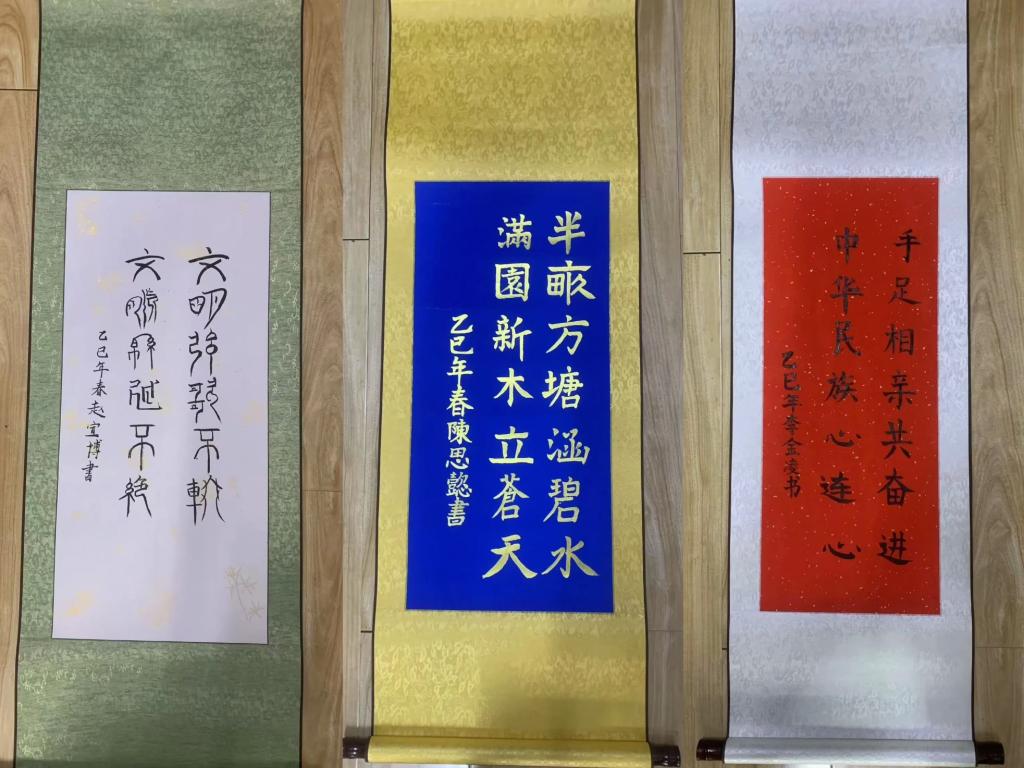 文明弦歌不輟
文脈綿延不絕
乙巳年春赵宣博書
半畝方塘涵碧水
滿園新木立蒼天
乙巳年春陳思懿書
手足相亲共奋进
中华民族心连心
乙巳年李金凌书